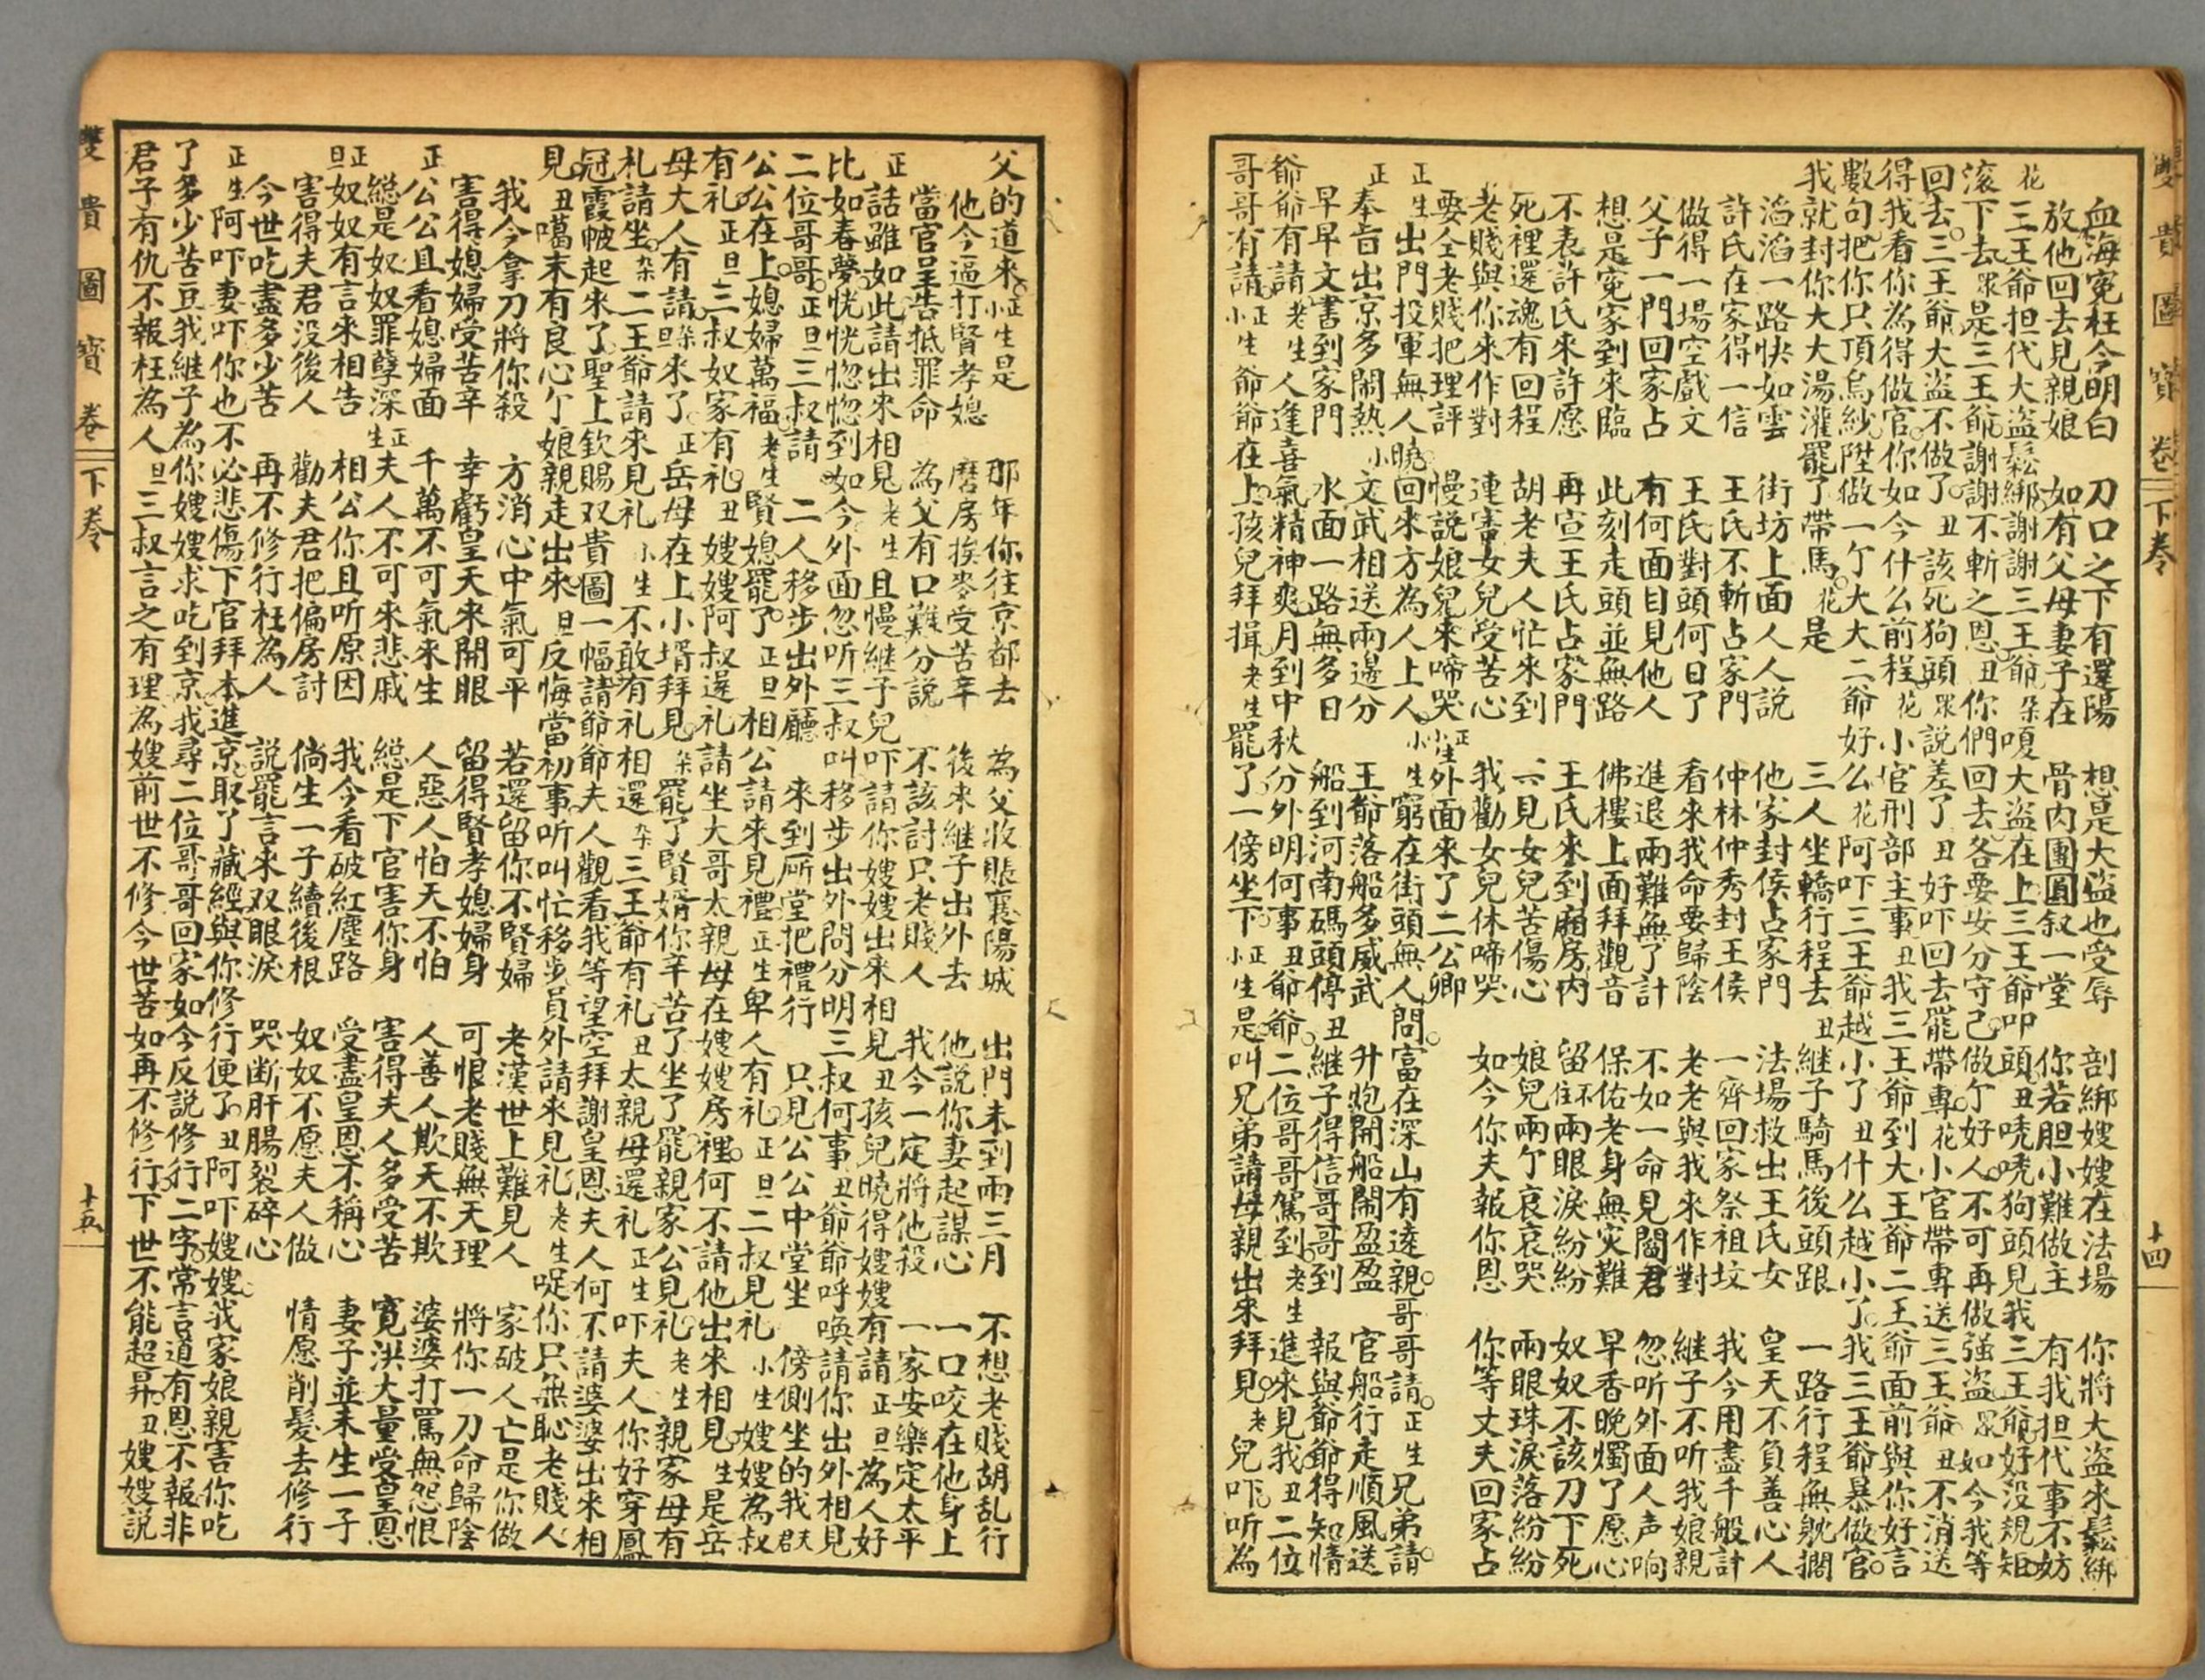 雙貴圖寶卷 下卷 十四
血海冤枉今明白 刀口之下有還陽 想是大盜也受辱 剖綁嫂嫂在法場 你將大盜來鬆綁
放他回去見親娘 如有父母妻子在 骨肉團圓叙一堂 你若胆小難做主 有我担代事不妨
花三王爺担代大盜鬆綁謝謝三王爺杂嗄大盜在上三王爺叩頭丑唬唬狗頭見我三王爺好没規矩
滚下去眾是三王爺謝謝不斬之恩丑你們回去各要安分守己做个好人不可再做强盜眾如今我等
回去三王爺大盜不做了丑該死狗頭眾説差了丑好吓回去罷帶專花小官帶專送三王爺丑不消送
得我看你為得做官你如今什么前程花小官刑部主事丑我三王爺到大王爺二王爺面前與你好言
數句把你只頂烏紗陞做一个大大二爺好么花阿吓三王爺越小了丑什么越小了我三王爺暴做官
我就封你大大湯灌罷了帶馬花是 三人坐轎行程去丑継子騎馬後頭跟 一路行程無躭擱
滔滔一路快如雲 街坊上面人人説 他家封侯占家門 法場救出王氏女 皇天不負善心人
許氏在家得一信 王氏不斬占家門 仲林仲秀封王侯 一齊回家祭祖坟 我今用盡千般計
做得一場空戲文 王氏對頭何日了 看來我命要歸陰 老老與我來作對 継子不听我娘親
父子一門回家占 有何面目見他人 進退兩難無了計 不如一命見閻君 忽听外面人声响
想是冤家到來臨 此刻走頭並無路 佛樓上面拜觀音 保佑老身無灾難 早香晚燭了愿心
不表許氏來許愿 再宣王氏占家門 王氏來到廂房内 留住不兩眼淚紛紛 奴奴不該刀下死
死裡還魂有回程 胡老夫人忙來到 一見女兒苦傷心 娘兒兩个哀哀哭 兩眼珠淚落紛紛
老賤與你來作對 連害女兒受苦心 我勸女兒休啼哭 如今你夫報你恩 你等丈夫回家占
要全老賤把理評 慢説娘兒來啼哭 正小生外面來了二公卿
正生出門投軍無人曉回來方為人上人小生窮在街頭無人問富在深山有遠親哥哥請正生兄弟請
正奉旨出京多鬧熱小文武相送兩邊分 王爺落船多威武 升炮開船鬧盈盈 官船行走順風送
早早文書到家門 水面一路無多日 船到河南碼頭停丑継子得信哥哥到 報與爺爺得知情
爺爺有請老生人逢喜氣精神爽月到中秋分外明何事丑爺爺二位哥哥駕到老生進來見我丑二位
哥哥有請正小生爺爺在上孩兒拜揖老生罷了一傍坐下正小生是叫兄弟請母親出來拜見老兒吓听為
父的道來正小生是 那年你往京都去 為父收賬襄陽城 出門未到兩三月 不想老賤胡乱行
他今逼打賢孝媳 磨房挨麥受苦辛 後來継子出外去 他説你妻起謀心 一口咬在他身上
當官呈告抵罪命 為父有口難分説 不該討只老賤人 我今一定將他殺 一家安樂定太平
正話雖如此請出來相見老生且慢継子兒吓請你嫂嫂出來相見丑孩兒曉得嫂嫂有請正旦為人好
比如春夢恍恍惚惚到如今外面忽听三叔叫移步出外問分明三叔何事丑爺爺呼喚請你出外相見
二位哥哥正旦三叔請 二人移步出外廳 來到㕔堂把禮行 只見公公中堂坐 傍側坐的我君天
公公在上媳婦萬福老生賢媳罷了正旦相公請來見禮正生卑人有礼正旦二叔見礼小生嫂嫂為叔
有礼正旦三叔奴家有礼丑嫂嫂阿叔還礼請坐大哥太親母在嫂嫂房裡何不請他出來相見生是岳
母大人有請杂旦來了正岳母在上小壻拜見杂罷了賢婿你辛苦了坐了罷親家公見礼老生親家母有
札請坐杂二王爺請來見礼小生不敢有礼相還杂三王爺有礼丑太親母還礼正生吓夫人你好穿鳳
冠霞帔起來了聖上欽賜双貴圖一幅請爺爺夫人觀看我等望空拜謝皇恩夫人何不請婆婆出來相
見丑噶末有良心个娘親走出來旦反悔當初事听叫忙移步員外請來見礼老生啶你只無恥老賤人
我今拿刀將你殺 方消心中氣可平 若還留你不賢婦 老漢世上難見人 家破人亡是你做
害得媳婦受苦辛 幸虧皇天來開眼 留得賢孝媳婦身 可恨老賤無天理 將你一刀命歸陰
正公公且看媳婦面 千萬不可氣來生 人惡人怕天不怕 人善人欺天不欺 婆婆打罵無怨恨
総是奴奴罪孽深正生夫人不可來悲戚 総是下官害你身 害得夫人多受苦 寬洪大量受皇恩
正旦奴奴有言來相告 相公你且听原因 我今看破紅塵路 受盡皇恩不稱心 妻子並未生一子
害得夫君没後人 勸夫君把偏房討 倘生一子續後根 奴奴不愿夫人做 情愿削髮去修行
今世吃盡多少苦 再不修行枉為人 説罷言來双眼淚 哭断肝腸裂碎心
正生阿吓妻吓你也不必悲傷下官拜本進京取了藏經與你修行便了丑阿吓嫂嫂我家娘親害你吃
了多少苦豆我継子為你嫂嫂求吃到京我尋二位哥哥回家如今反説修行二字常言道有恩不報非
君子有仇不報枉為人旦三叔言之有理為嫂前世不修今世苦如再不修行下世不能超昇丑嫂嫂説
雙貴圖寶卷 下卷 十五